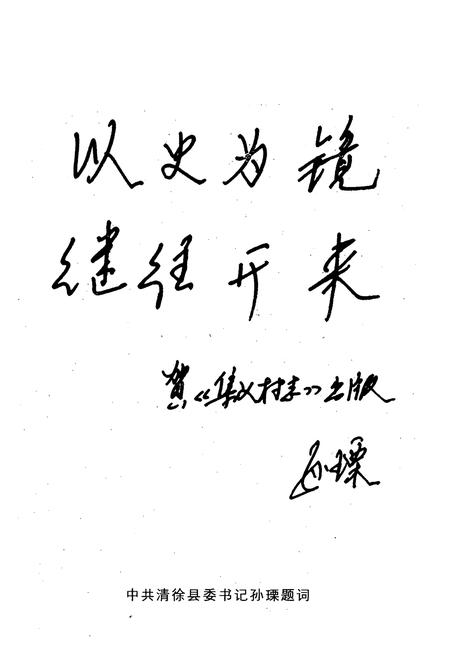 以史为镜
继往开来
贺《集义村志》出版
孙瑮
中共清徐县委书记孙瑮题词